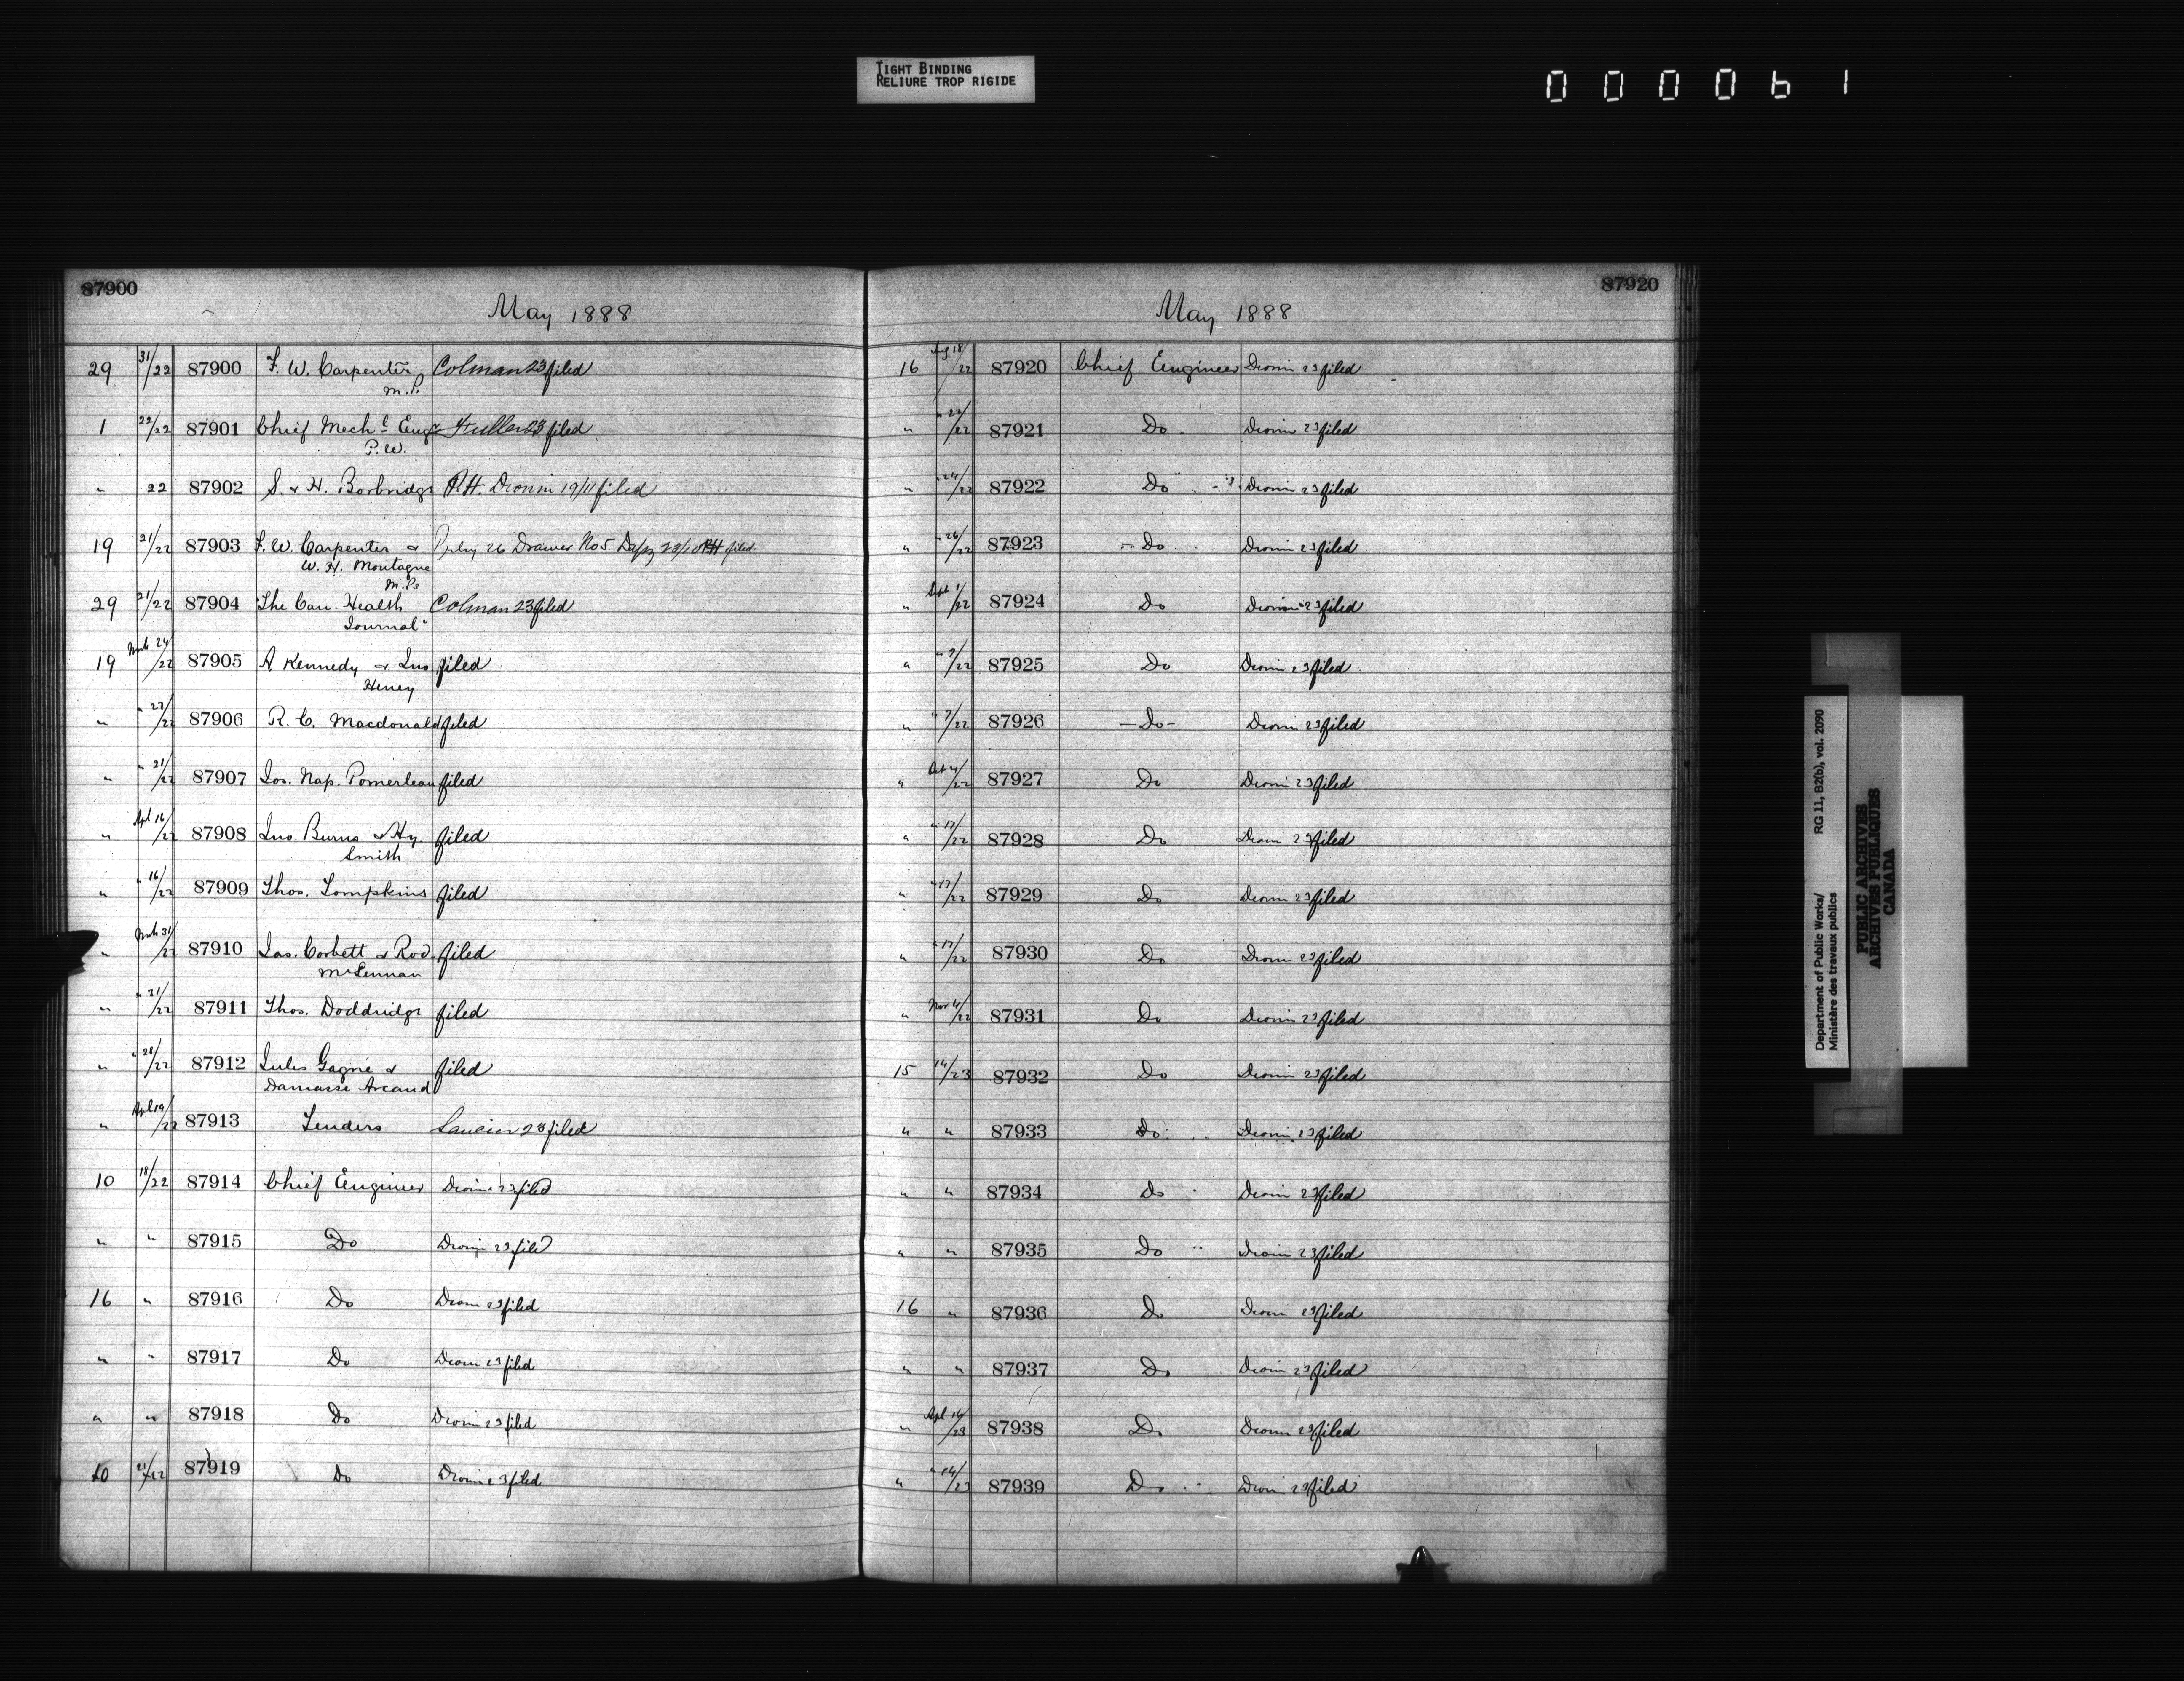 TIGHT BINDING
RELIURE TROP RIGIDE
000061
87900
May 1888
29 31/22 87900 F. W. Carpenter Colman 23 filed
M.P.
1 22/22 87901 Chief Mech l Engr Fuller 23 filed
P.W.
" 22 87902 S. & H. Borbridge R.H. Dronin 19/11 filed
19 21/22 87903 F. W. Carpenter & 26 Drawer No 5 filed
W. H. Montague
M.Ps
29 21/22 87904 The Can. Health Colman 23 filed
Journal"
19 Mch 24/22 87905 A Kennedy & Jno. filed
Heney
" " 27/22 87906 R. C. Macdonald filed
" " 21/22 87907 Jos. Nap. Pomerleau filed
" Apl 16/22 87908 Jno. Burns & Hy. filed
Smith
" " 16/22 87909 Thos. Tompkins filed
" Mch 31/22 87910 Jas. Corbett & Rod. filed
McLennan
" " 21/22 87911 Thos. Doddridge filed
" " 28/22 87912 Jules Gagné & filed
Damasse Arcand
" Apl 19/22 87913 Tenders 23 filed
10 18/22 87914 Chief Engineer Dronin 23 filed
" " 87915 Do Dronin 23 filed
16 " 87916 Do Dronin 23 filed
" " 87917 Do Dronin 23 filed
" " 87918 Do Dronin 23 filed
10 21/22 87919 Do Dronin 23 filed
87920
May 1888
16 Aug 18/22 87920 Chief Engineer Dronin 23 filed
" " 22/22 87921 Do Dronin 23 filed
" " 24/22 87922 Do Dronin 23 filed
" " 26/22 87923 Do Dronin 23 filed
" Sept 1/22 87924 Do Dronin 23 filed
" " 7/22 87925 Do Dronin 23 filed
" " 7/22 87926 - Do - Dronin 23 filed
" Oct 4/22 87927 Do Dronin 23 filed
" " 17/22 87928 Do Dronin 23 filed
" " 17/22 87929 Do Dronin 23 filed
" " 17/22 87930 Do Dronin 23 filed
" Nov 4/22 87931 Do Dronin 23 filed
15 14/23 87932 Do Dronin 23 filed
" " 87933 Do Dronin 23 filed
" " 87934 Do Dronin 23 filed
" " 87935 Do Dronin 23 filed
16 " 87936 Do Dronin 23 filed
" " 87937 Do Dronin 23 filed
" Apl 14/23 87938 Do Dronin 23 filed
" " 14/23 87939 Do Dronin 23 filed
Department of Public Works/ RG 11, B2(b), vol. 2090
Ministère des travaux publics
PUBLIC ARCHIVES
ARCHIVES PUBLIQUES
CANADA